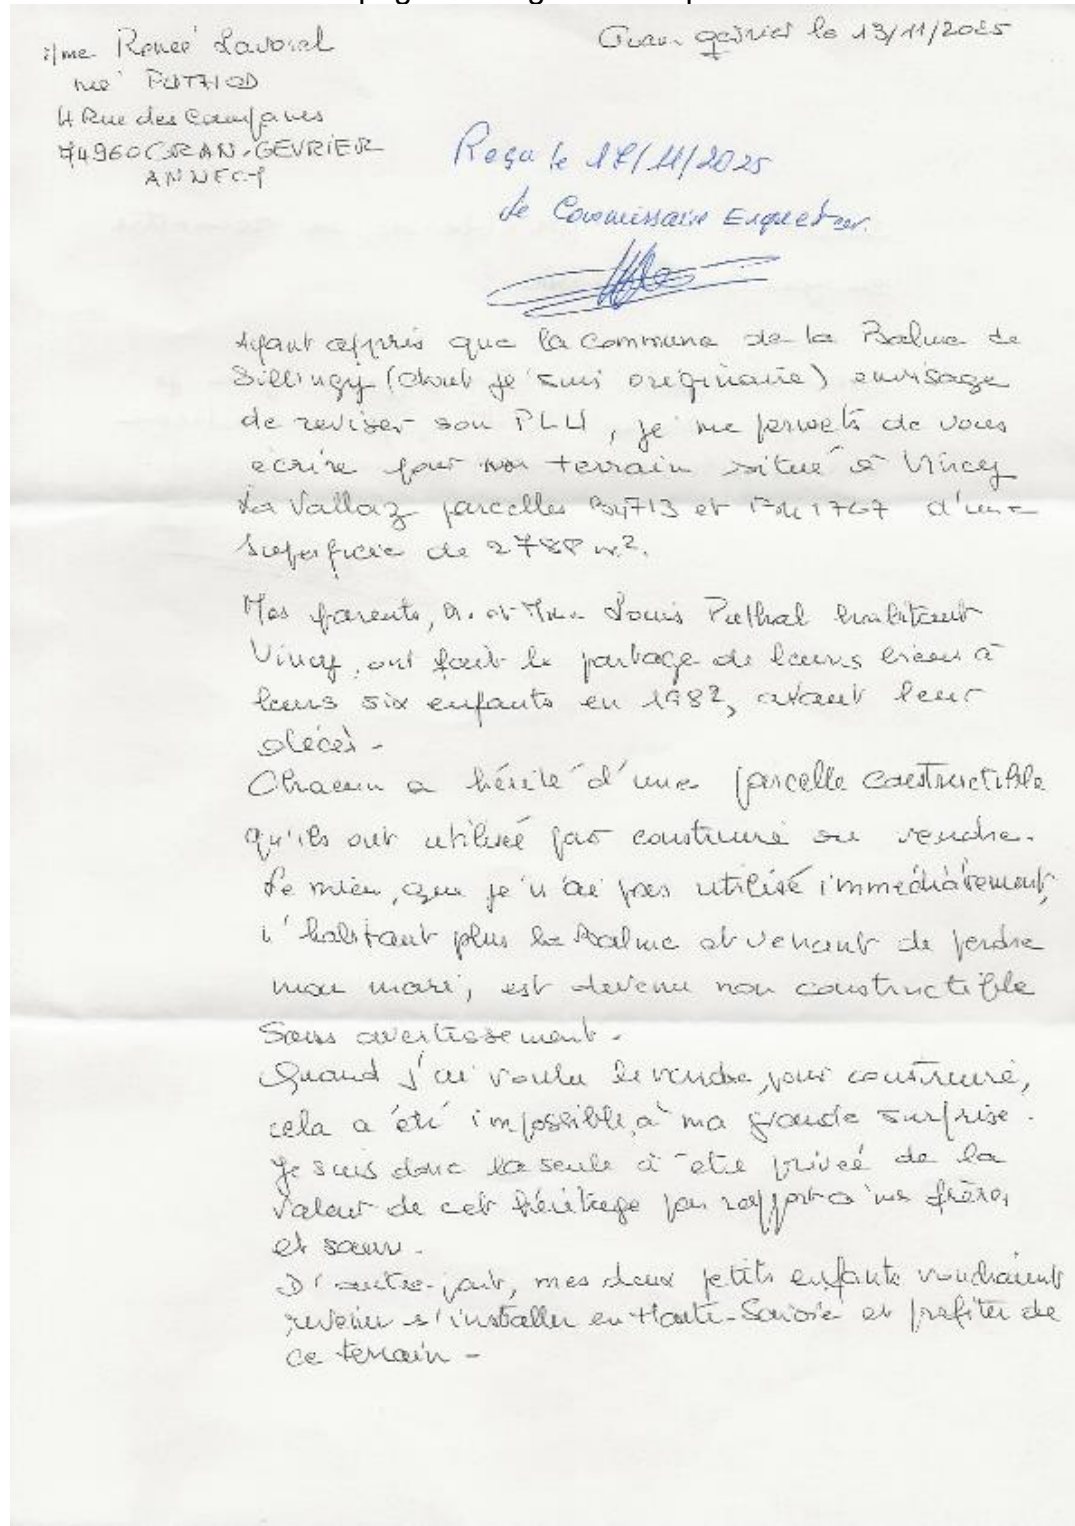 Mme Renée Lavorel
née PUTHOD
4 Rue des Campanes
74960 CRAN-GEVRIER
ANNECY
Cran gevrier le 13/11/2025
Reçu le 17/11/2025
le Commissaire Enquêteur.
Ayant appris que la commune de la Balme de
Sillingy (dont je suis originaire) envisage
de reviser son PLU, je me permets de vous
écrire pour mon terrain situé à Vincy
La Vallaz parcelles 713 et 1767 d'une
superficie de 2788 m².
Mes parents, M. et Mme Louis habitant
Vincy, ont fait le partage de leurs biens à
leurs six enfants en 1982, avant leur
décès -
Chacun a hérité d'une parcelle constructible
qu'ils ont utilisé pour construire ou vendre.
Le mien, que je n'ai pas utilisé immédiatement,
n'habitant plus la Balme et venant de perdre
mon mari, est devenu non constructible
Sans avertissement.
Quand j'ai voulu le vendre, pour construire,
cela a été impossible, à ma grande surprise.
Je suis donc la seule à être privée de la
valeur de cet héritage par rapport à mes frères
et sœurs.
D'autre-part, mes deux petits enfants voudraient
revenir s'installer en Haute-Savoie et profiter de
ce terrain -